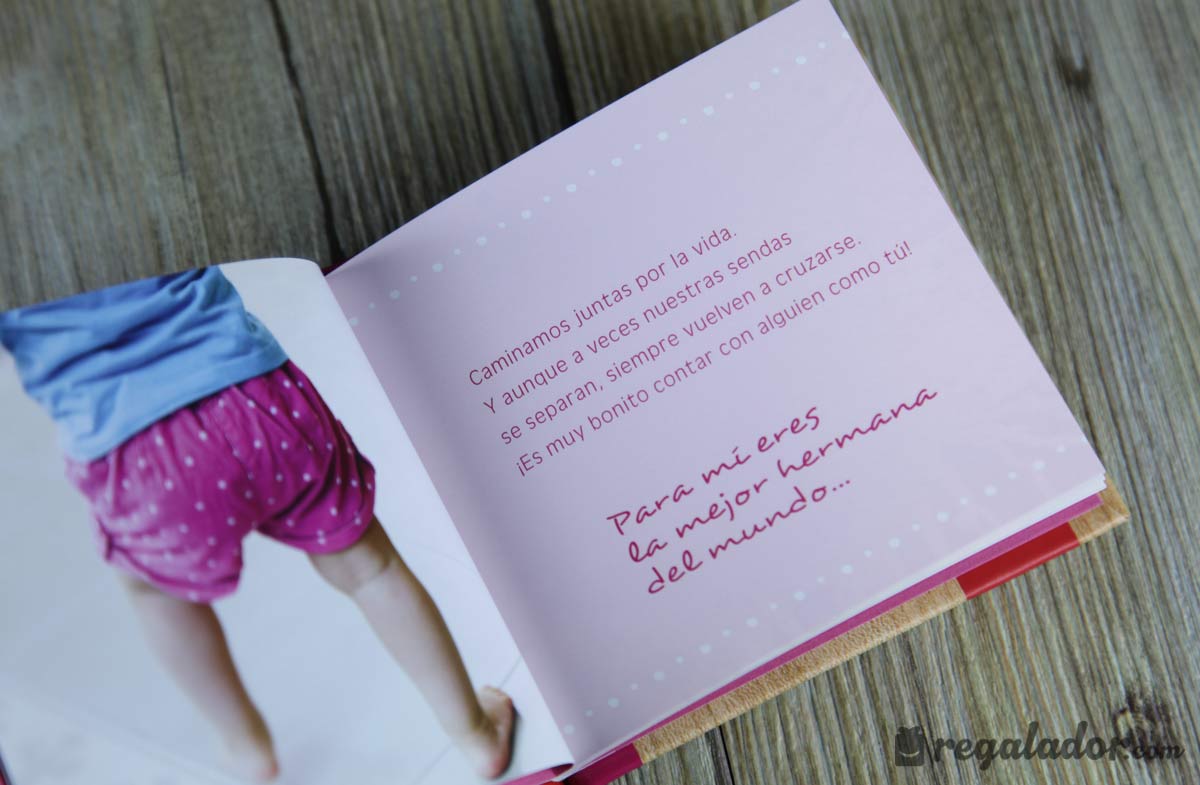 Caminamos juntas por la vida.
Y aunque a veces nuestras sendas
se separan, siempre vuelven a cruzarse.
¡Es muy bonito contar con alguien como tú!
Para mí eres
la mejor hermana
del mundo...
regalador.com